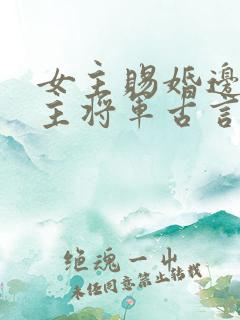 女主赐婚边
主将军古言
绝魂一出
未经同意禁止转载